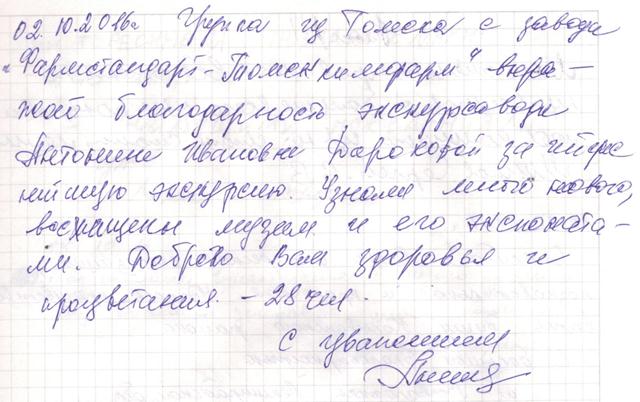 02.10.2016г Группа из Томска с завода
"Фармстандарт-Томскхимфарм" выра-
жает благодарность экскурсоводу
Антонине Ивановне за интерес
нейшую экскурсию. Узнали много нового,
восхищены музеем и его экспоната-
ми. Доброго Вам здоровья и
процветания. - 28 чел.
С уважением